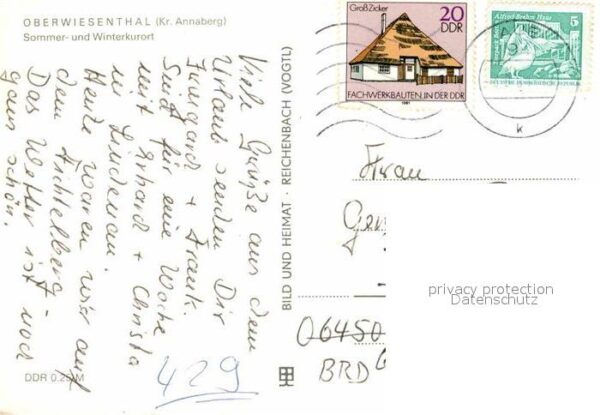 OBERWIESENTHAL (Kr. Annaberg)
Sommer- und Winterkurort
Viele Grüße aus dem
Urlaub senden Dir
Irmgard + Frank.
Sind für eine Woche
mit Erhard + Christa
in Lindenau.
Heute waren wir auf
dem Fichtelberg.
Das Wetter ist noch
ganz schön.
DDR 0.25 M
BILD UND HEIMAT · REICHENBACH (VOGTL)
429
Groß Zicker
20
DDR
FACHWERKBAUTEN IN DER DDR
1981
Alfred Brehm Haus
5
k
Frau
06450
BRD
privacy protection
Datenschutz